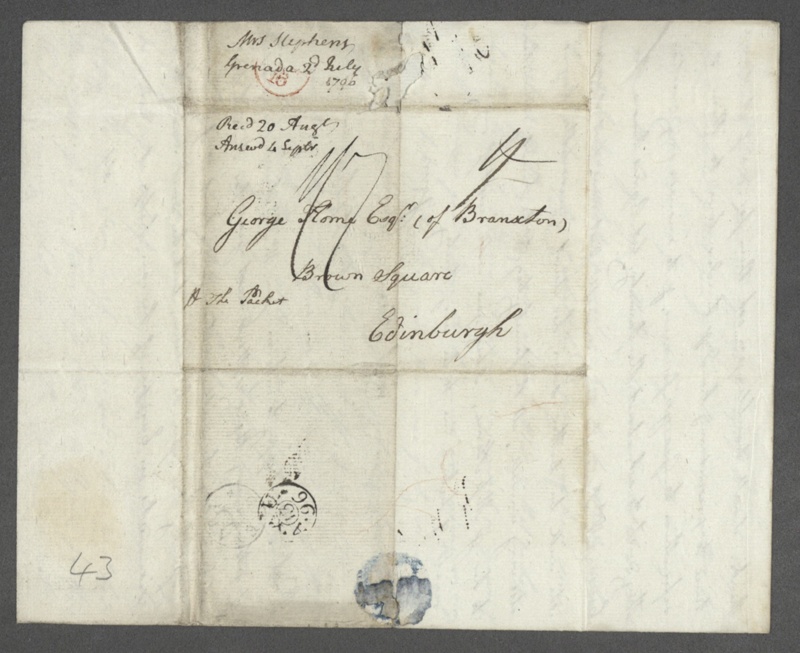 Mrs Stephens
Grenada 2d July
1796
Recd 20 Augt
Answd 4 Septr
George Home Esqr. (of Branxton)
Brown Square
The Packet
Edinburgh
96
43